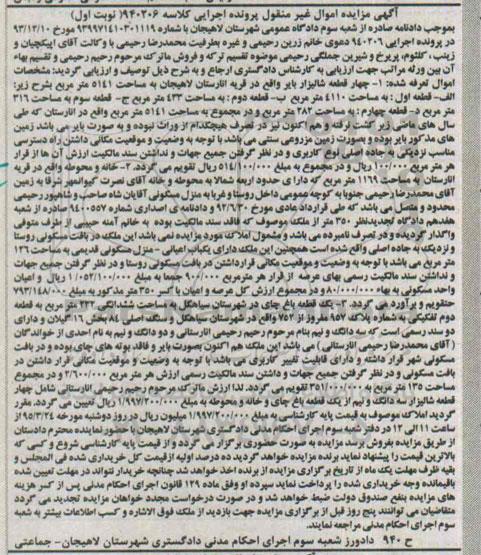 آگهی مزایده اموال غیر منقول پرونده اجرایی کلاسه ۹۴۰۲۰۶( نوبت اول)
بموجب دادنامه صادره از شعبه سوم دادگاه عمومی شهرستان لاهیجان با شماره ۹۳۹۹۷۱۴۱۰۳۰۱۱۱۹ مورخ ۹۳/۱۲/۱۰
در پرونده اجرایی ۹۴۰۲۰۶ دعوی خانم زرین رحیمی و غیره بطرفیت محمدرضا رحیمی با وکالت آقای اپیکچیان و
زینب ، کلثوم، پریرخ و شیرین جملگی رحیمی موضوع تقسیم ترکه و فروش ماترک مرحوم رحیم رحیمی و تقسیم بهاء
آن بین ورثه مراتب جهت ارزیابی به کارشناس دادگستری ارجاع و به شرح ذیل توصیف و ارزیابی گردید: مشخصات
اموال تعرفه شده: ۱- چهار قطعه شالیزار بایر واقع در قریه انارستان لاهیجان به مساحت ۵۱۴۱ متر بشرح زیر:
الف- قطعه اول : به مساحت ۴۱۱۰ متر مربع ب- قطعه دوم : به مساحت ۴۳۳ متر مربع ج- قطعه سوم به مساحت ۳۱۶
متر مربع د- قطعه چهارم : به مساحت ۲۸۲ متر مربع و در مجموع به مساحت ۵۱۴۱ متر مربع واقع در انارستان که طی
سال های ماضی زیر کشت نرفته و هم اکنون نیز در تصرف هیچکدام از وراث نبوده و به صورت بایر می باشد زمین
های مذکور بایر بوده و بصورت زمین مزروعی سنتی می باشد با توجه به وضعیت و موقعیت مکانی داشتن راه دسترسی
مناسب نزدیکی به جاده اصلی نوع کاربری و در نظر گرفتن جمیع جهات و نداشتن سند مالکیت ارزش آن ها از قرار
هر متر مربع ۱۰۰/۰۰۰ ریال و در مجموع به مبلغ ۵۱۴/۱۰۰/۰۰۰ ریال تقویم می گردد. ۲- خانه و محوطه واقع در قریه
انارستان به مساحت ۱۱۶۹ متر مربع که دارای حدود اربعه شمالا به محوطه و خانه آقای نصرت کیوانمهر شرقا به زمین
آقای محمدرضا رحیمی جنوبا به کوچه عمومی داخل روستا و غربا به منزل مسکونی آقایان شاهرخ رجب و شاهپور رحیمی
محدود و متصل می باشد که طی قرارداد عادی مورخ ۹۲/۶/۳ و دادنامه ی اصداری شماره ۹۴۰۰۵۵۷ صادره از شعبه
هفدهم دادگاه تجدیدنظر ۳۵۰ متر از ملک وصفی که فاقد سند مالکیت بوده به خانم آمنه حبیبی از طرف متوفی
واگذار گردیده و در تصرف نامبرده می باشد و مشمول املاک مورد مزایده نمی باشد این ملک در بافت مسکونی روستا
و نزدیک به جاده اصلی واقع شده است همچنین این ملک دارای یکباب اعیانی - منزل مسکونی قدیمی به مساحت ۱۳۶
متر مربع می باشد با توجه به وضعیت و موقعیت مکانی قرار داشتن در بافت مسکونی روستا و در نظر گرفتن جمیع جهات
و نداشتن سند مالکیت رسمی بهای عرصه از قرار هر متر مربع ۹۰۰/۰۰۰ جمعا به مبلغ ۱/۰۵۲/۱۰۰/۰۰۰ ریال و اعیان
واحد مسکونی به بهاء ۸۰/۰۰۰/۰۰۰ و در مجموع ارزش کل عرصه و اعیان با کسر ۳۵۰ متر مذکور به مبلغ ۷۹۳/۱۴۸/۰۰۰
تقویم و برآورد می گردد. ۳- یک قطعه باغ چای در شهرستان سیاهکل به مساحت ششدانگی ۲۲۲ متر مربع به قطعه
دوم تفکیکی به شماره پلاک ۹۵۷ مفروز از ۷۵۲ واقع در شهرستان سیاهکل و سنگ اصلی ۸۱ بخش ۱۶ گیلان و دارای
دو سند رسمی است که سه دانگ و نیم بنام مرحوم رحیم رحیمی انارستانی و دو دانگ و نیم به نام احدی از خواندگان
( آقای محمدرضا رحیمی انارستانی ) می باشد این ملک هم اکنون بصورت بایر و فاقد بوته های چای بوده و در بافت
مسکونی شهر قرار داشته و دارای قابلیت تغییر کاربری می باشد با توجه به وضعیت و موقعیت مکانی قرار داشتن در
بافت مسکونی و در نظر گرفتن جمیع جهات و داشتن سند مالکیت رسمی ارزش هر متر مربع ۲/۶۰۰/۰۰۰ و در مجموع
مساحت ۱۳۵ متر مربع به ۳۵۱/۰۰۰/۰۰۰ تقویم می گردد. لذا ارزش ماترک مرحوم رحیم رحیمی انارستانی شامل چهار
قطعه شالیزار سه دانگ و نیم از یک قطعه باغ چای و خانه و محوطه به مبلغ ۱/۹۹۷/۲۰۰/۰۰۰ ریال تعیین می گردد. مقرر
گردید املاک موصوف به قیمت پایه کارشناسی به مبلغ ۱/۹۹۷/۲۰۰/۰۰۰ میلیون ریال در روز دوشنبه مورخه ۹۵/۳/۲۴ از
ساعت ۱۱ الی ۱۲ در دفتر شعبه سوم اجرای احکام مدنی دادگستری شهرستان لاهیجان با حضور نماینده محترم دادستان
از طریق مزایده بفروش برسد مزایده به صورت حضوری برگزار می گردد و از قیمت پایه کارشناسی شروع و کسی که
بالاترین قیمت را پیشنهاد نماید برنده مزایده خواهد گردید ده درصد اولیه از قیمت کل خریداری شده فی المجلس و
بقیه ظرف مهلت یک ماه از تاریخ برگزاری مزایده از برنده اخذ خواهد شد چنانچه خریدار نتواند در مهلت تعیین شده
باقیمانده وجه خریداری شده را پرداخت نماید سپرده او وفق ماده ۱۲۹ قانون اجرای احکام مدنی پس از کسر هزینه
های مزایده بنفع صندوق دولت ضبط خواهد شد و در صورت درخواست مجدد خواهان مزایده تجدید می گردد
متقاضیان می توانند پنج روز قبل از برگزاری مزایده جهت بازدید از ملک فوق الاشاره و کسب اطلاعات بیشتر به شعبه
سوم اجرای احکام مدنی مراجعه نمایند.
ح ۹۴۰ دادورز شعبه سوم اجرای احکام مدنی دادگستری شهرستان لاهیجان- جماعتی